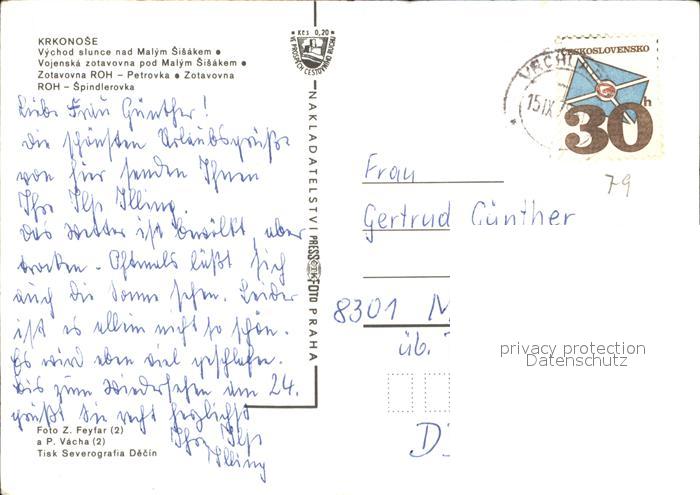 KRKONOŠE
Východ slunce nad Malým Šišákem ●
Vojenská zotavovna pod Malým Šišákem ●
Zotavovna ROH – Petrovka ● Zotavovna
ROH – Špindlerovka
Liebe Frau Günther!
die schönsten Urlaubsgrüße
von hier senden Ihnen
Ihre Ilse Illing.
das Wetter ist bewölkt, aber
trocken. Oftmals läßt sich
auch die Sonne sehen. Leider
ist es allein nicht so schön.
Es wird eben viel geschlafen.
bis zum Wiedersehen am 24.
grüßt Sie recht herzlichst
Ihre Ilse
Illing
Foto Z. Feyfar (2)
a P. Vácha (2)
Tisk Severografia Děčín
Kčs 0,20
VE PROSPĚCH CESTOVNÍHO RUCHU
NAKLADATELSTVÍ PRESSFOTO PRAHA
ČESKOSLOVENSKO
30h
15.IX.
79
Frau
Gertrud Günther
8301 M
üb.
D
privacy protection
Datenschutz